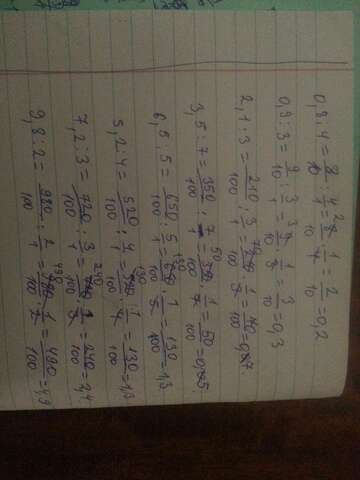 0,8:4=8/10:4=8/10·1/4=2/10=0,2
0,9:3=9/10:3/1=9/10·1/3=3/10=0,3
2,1:3=210/100:3/1=210/100·1/3=70/100=0,7
3,5:7=350/100:7/1=350/100·1/7=50/100=0,5
6,5:5=650/100:5/1=650/100·1/5=130/100=1,3
5,2:4=520/100:4/1=520/100·1/4=130/100=1,3
7,2:3=720/100:3/1=720/100·1/3=240/100=2,4
9,8:2=980/100:2/1=980/100·1/2=490/100=4,9